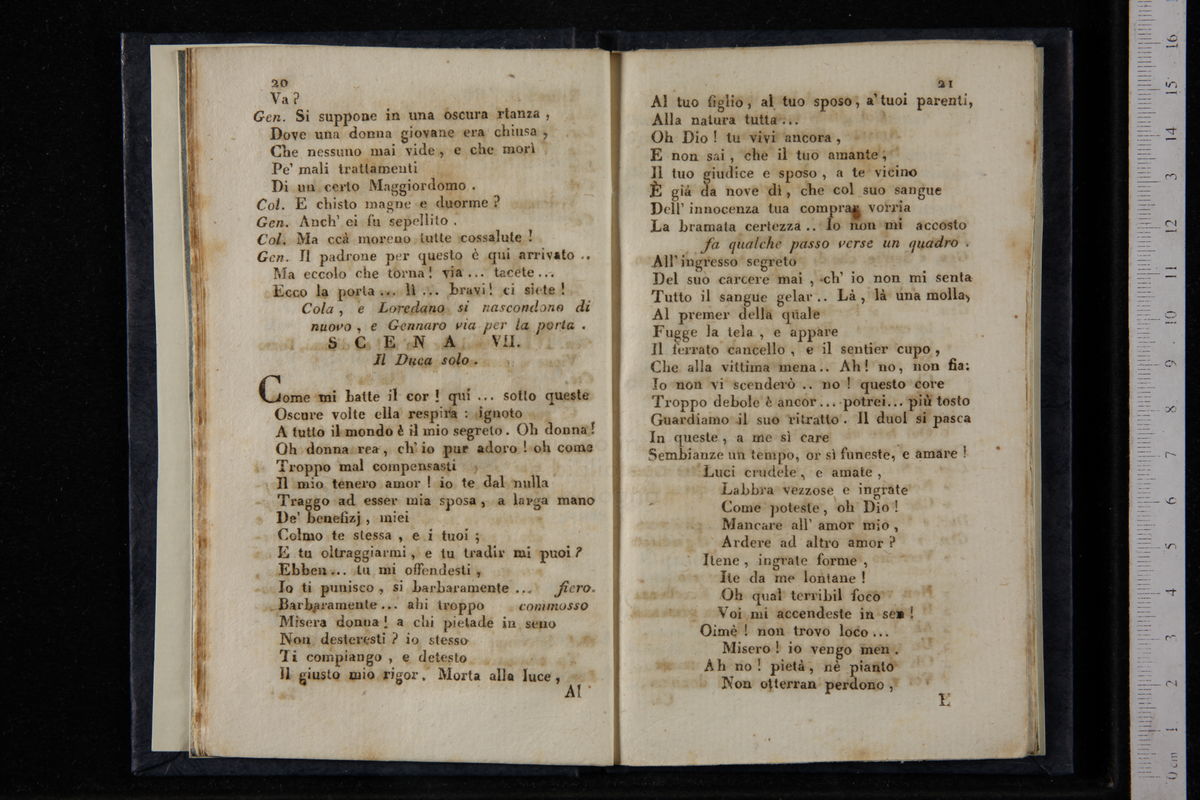 20
Va?
Gen. Si suppone in una oscura stanza,
Dove una donna giovane era chiusa,
Che nessuno mai vide, e che morì
Pe' mali trattamenti
Di un certo Maggiordomo.
Col. E chisto magne e duorme?
Gen. Anch' ei fu sepellito.
Col. Ma ccà moreno tutte cossalute!
Gen. Il padrone per questo è qui arrivato..
Ma eccolo che torna! via... tacete...
Ecco la porta... lì... bravi! ci siete!
Cola, e Loredano si nascondono di
nuovo, e Gennaro via per la porta.
SCENA VII.
Il Duca solo.
Come mi batte il cor! quì... sotto queste
Oscure volte ella respira: ignoto
A tutto il mondo è il mio segreto. Oh donna!
Oh donna rea, ch' io pur adoro! oh come
Troppo mal compensasti
Il mio tenero amor! io te dal nulla
Traggo ad esser mia sposa, a larga mano
De' benefizj, miei
Colmo te stessa, e i tuoi;
E tu oltraggiarmi, e tu tradir mi puoi?
Ebben... tu mi offendesti,
Io ti punisco, si barbaramente... fiero.
Barbaramente... ahi troppo commosso
Misera donna! a chi pietade in seno
Non desteresti? io stesso
Ti compiango, e detesto
Il giusto mio rigor. Morta alla luce,
Al
21
Al tuo figlio, al tuo sposo, a' tuoi parenti,
Alla natura tutta...
Oh Dio! tu vivi ancora,
E non sai, che il tuo amante,
Il tuo giudice e sposo, a te vicino
È già da nove dì, che col suo sangue
Dell' innocenza tua comprar vorria
La bramata certezza.. Io non mi accosto
fa qualche passo verse un quadro.
All' ingresso segreto
Del suo carcere mai, ch' io non mi senta
Tutto il sangue gelar.. Là, là una molla,
Al premer della quale
Fugge la tela, e appare
Il ferrato cancello, e il sentier cupo,
Che alla vittima mena.. Ah! no, non fia:
Io non vi scenderò.. no! questo core
Troppo debole è ancor... potrei... più tosto
Guardiamo il suo ritratto. Il duol si pasca
In queste, a me sì care
Sembianze un tempo, or sì funeste, e amare!
Luci crudele, e amate,
Labbra vezzose e ingrate
Come poteste, oh Dio!
Mancare all' amor mio,
Ardere ad altro amor?
Itene, ingrate forme,
Ite da me lontane!
Oh qual terribil foco
Voi mi accendeste in sen!
Oimè! non trovo loco...
Misero! io vengo men.
Ah no! pietà, nè pianto
Non otterran perdono,
E
0 cm 1 2 3 4 5 6 7 8 9 10 11 12 13 14 15 16